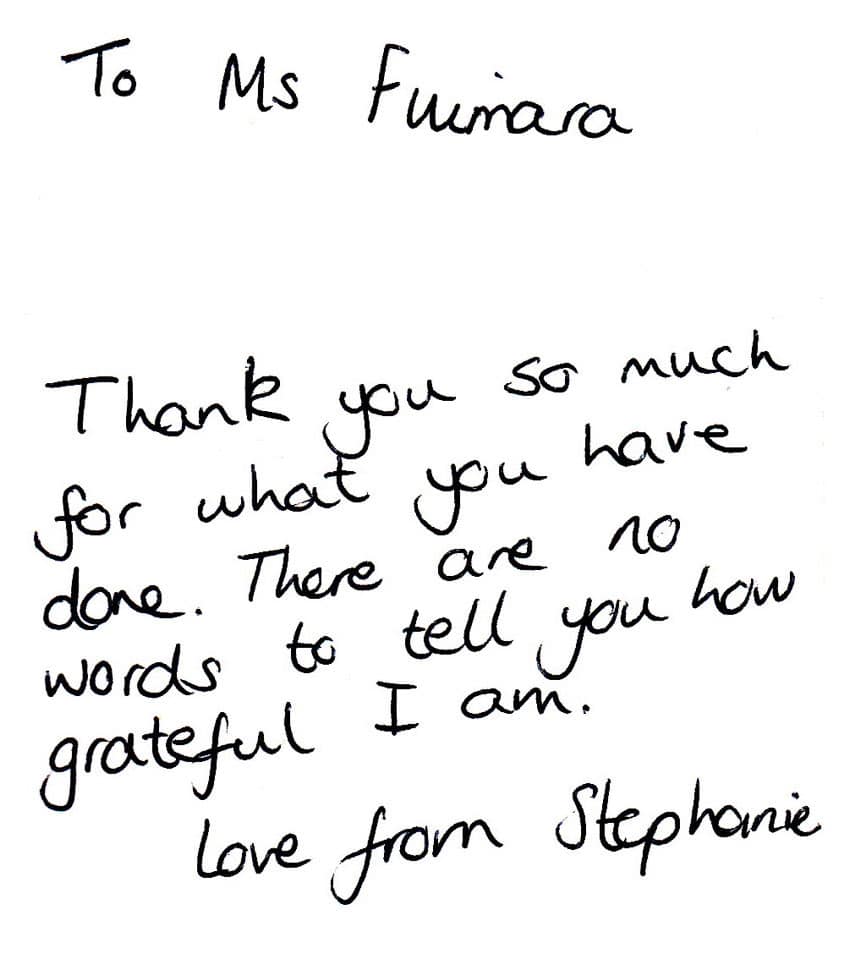 To Ms Fuimara
Thank you so much
for what you have
done. There are no
words to tell you how
grateful I am.
Love from Stephanie